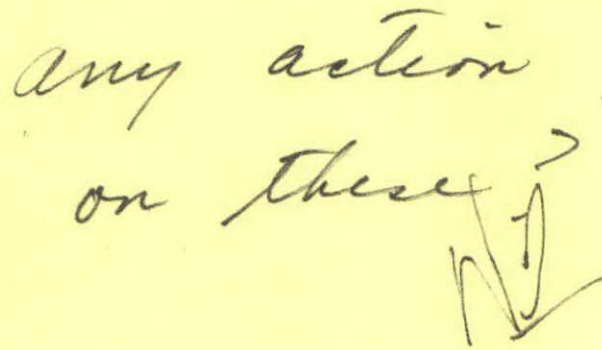 any action
on these?